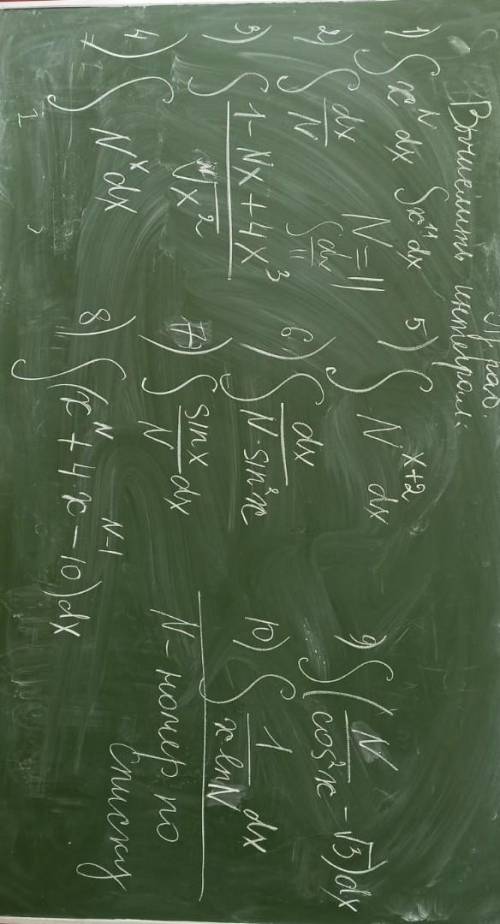 Вычислить интеграл:
1) ∫ x^N dx ∫ x^11 dx
N = 11
2) ∫ dx/N ∫ dx/11
3) ∫ (1 - Nx + 4x^3)/(ᴺ√x^2)
4) ∫ N^x dx
5) ∫ N^(x+2) dx
6) ∫ dx/(N·sin²x)
7) ∫ sinx/N dx
8) ∫ (x^N + 4x^(N-1) - 10) dx
9) ∫ (N/cos²x - √3) dx
10) ∫ 1/(x lnN) dx
N - номер по
списку